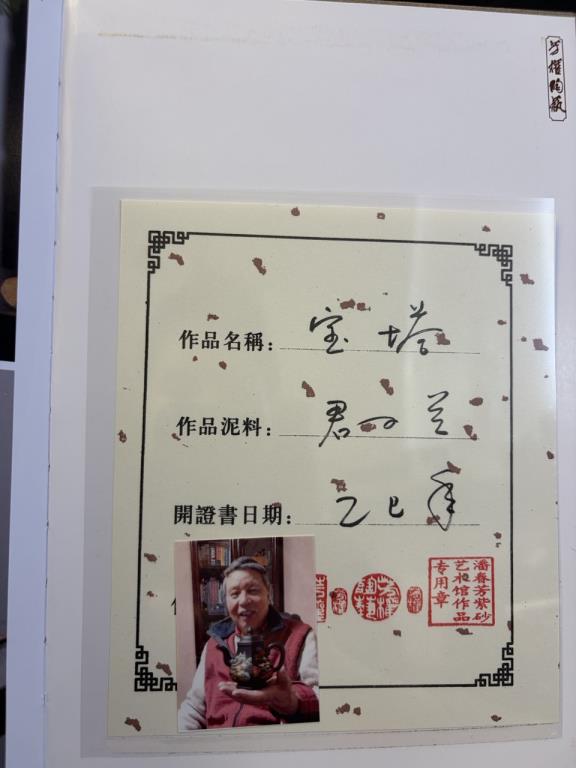 芳權陶藝
作品名稱：宝塔
作品泥料：君 兰
開證書日期：乙巳年
芳權陶藝
潘春芳紫砂
艺术馆作品
专用章